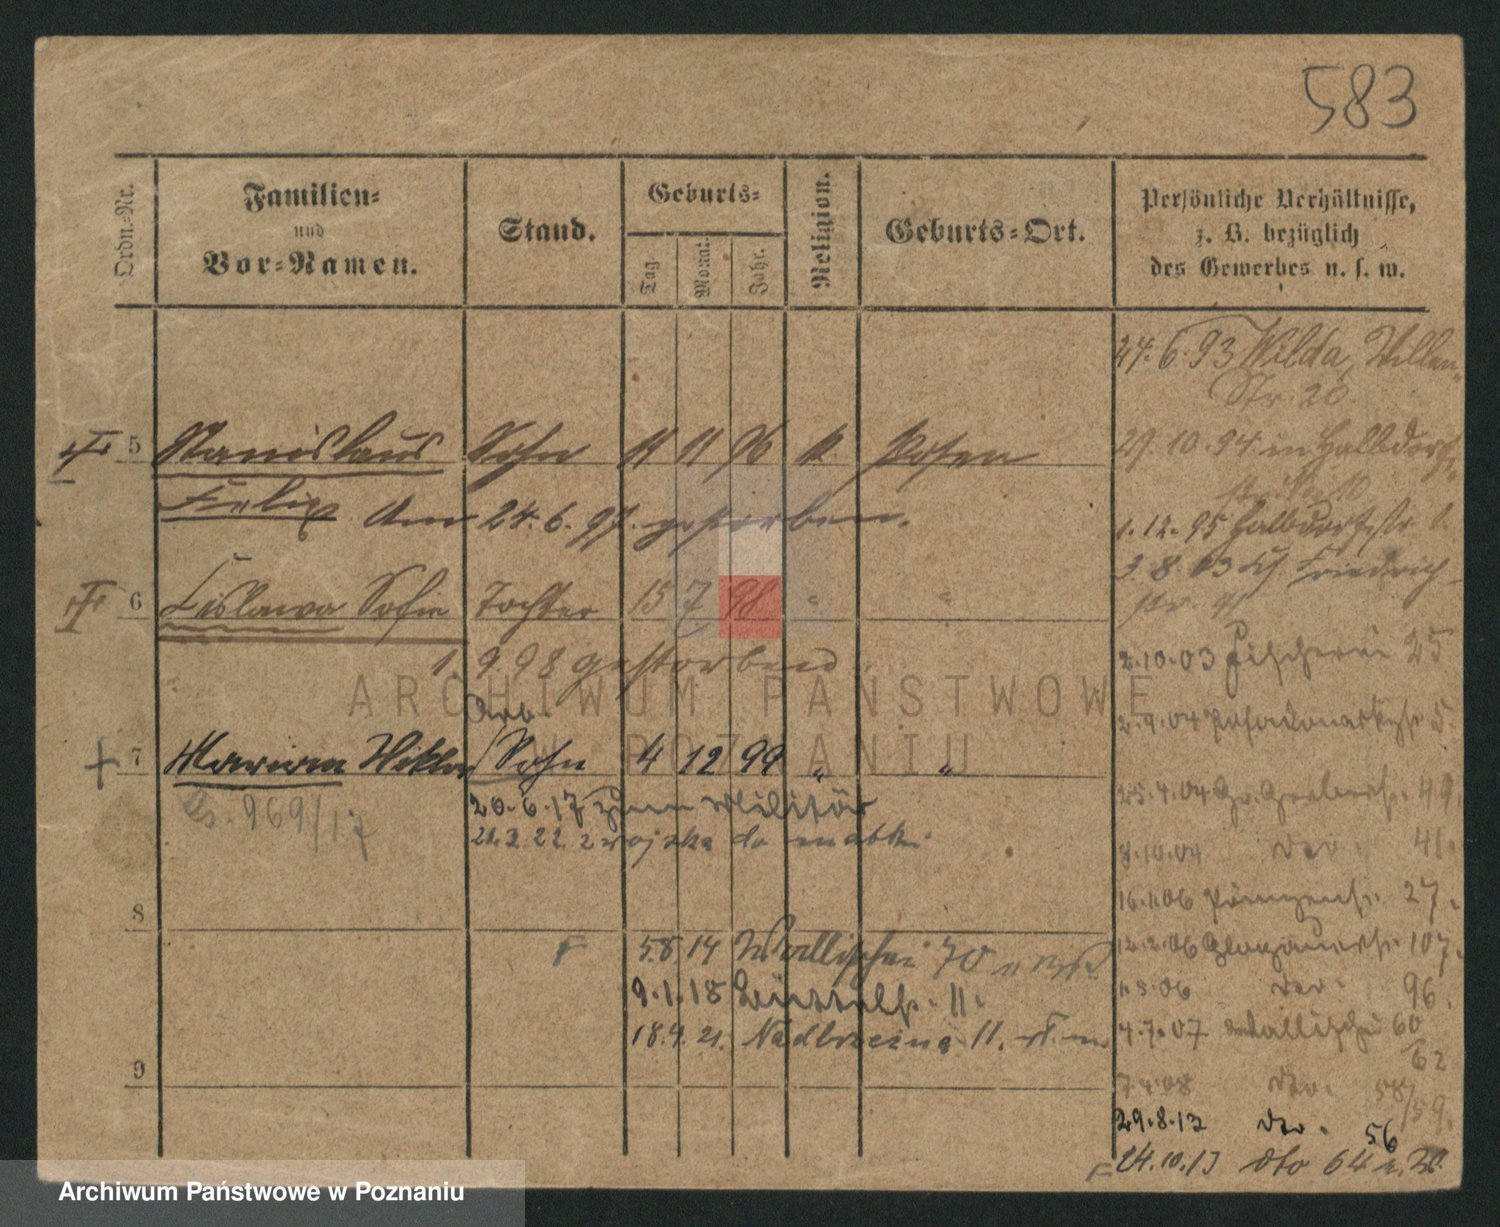 583
Ordn.-Nr.
Familien-
und
Vor-Namen.
Stand.
Geburts-
Tag
Monat.
Jahr.
Religion.
Geburts-Ort.
Persönliche Verhältnisse,
z. B. bezüglich
des Gewerbes u. s. w.
5 Stanislaus Sohn 11 11 96 k Posen
Felix Am 24.6.97. gestorben.
6 Cislawa Sofie Tochter 15 7 98 " "
1. 9.98 gestorben
Arb.
7 Marian Sohn 4 12 99 " "
20.6.17 zum Militär
969/17
21.3.22 z wojska do matki
8
F 5.8.14 Wallischei 70
9.1.18 11.
18.4.21. Nadbrzezna 11.
9
24.6.93 Wilda,
Str. 20
29.10.94 in Halbdorf-
str. No 10
1.12.95 Halbdorfstr.
3.8.03 Friedrich-
str.
2.10.03 Fischerei 25
2.4.04 5.
25.4.04 Gr. Gerberstr. 49.
8.10.04 dto. 41.
16.1.06 27.
12.2.06 Glogauerstr. 107.
1.3.06 dto. 96.
4.7.07 Wallischei 60
62
7.4.08 dto. 58/59.
29.8.12 dto. 56
F 24.10.13 dto 64
ARCHIWUM PAŃSTWOWE
W POZNANIU
Archiwum Państwowe w Poznaniu